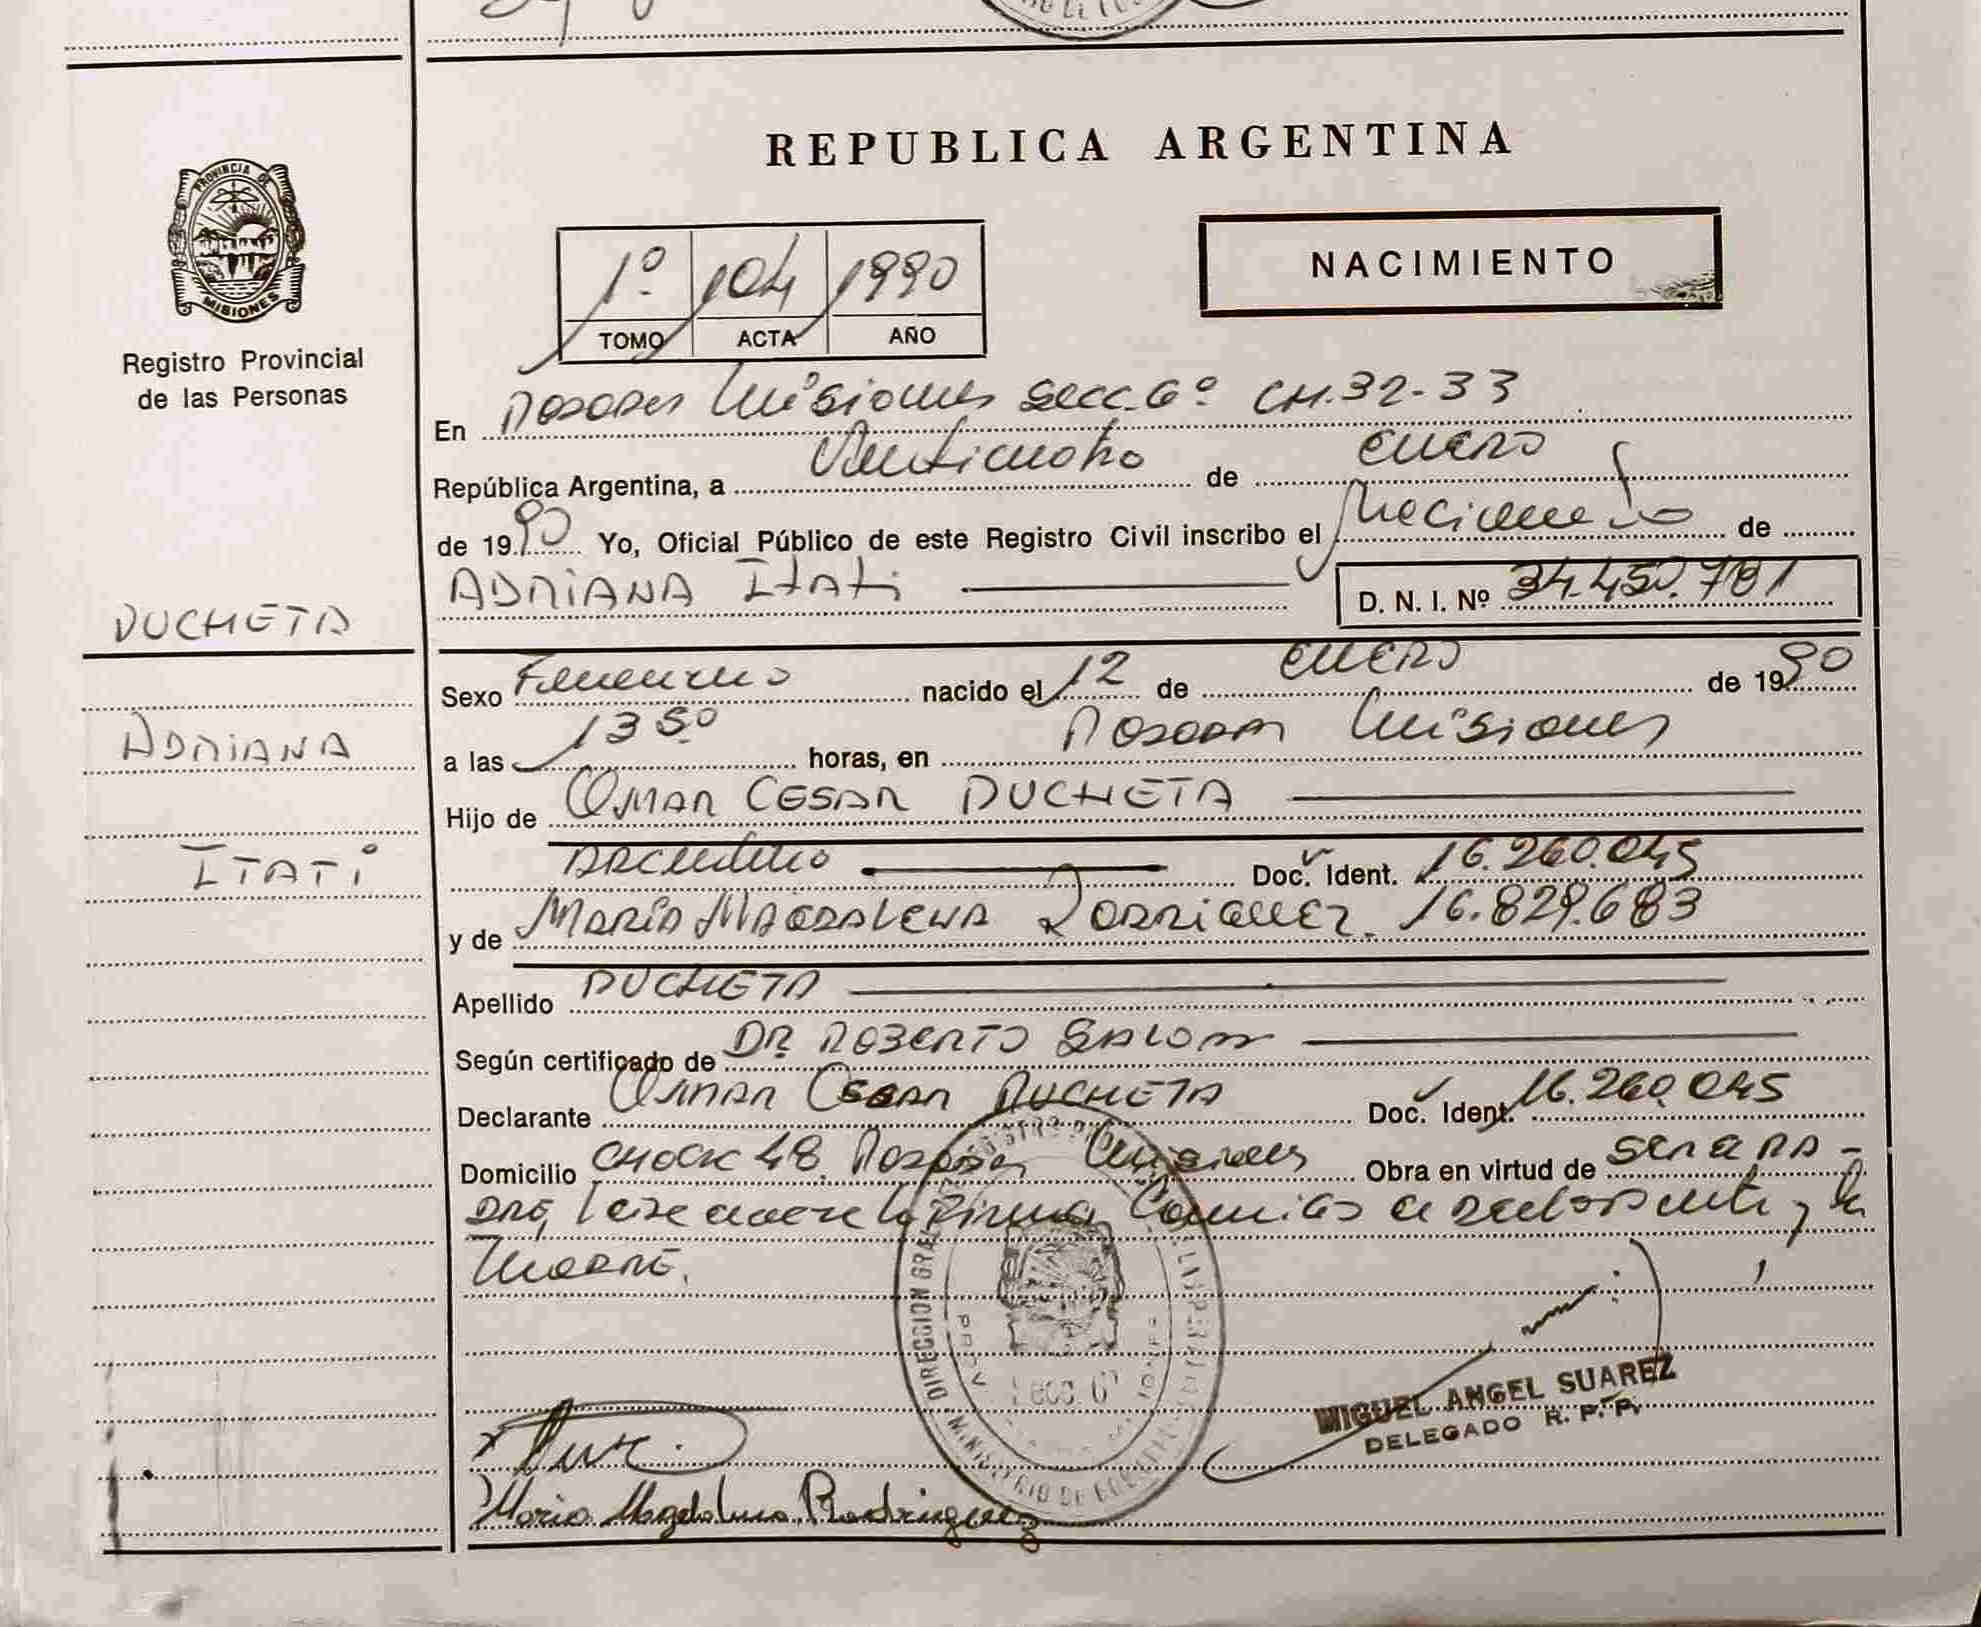 REPUBLICA ARGENTINA
PROVINCIA DE
MISIONES
Registro Provincial
de las Personas
1º 104 1990
TOMO ACTA AÑO
NACIMIENTO
En Posadas Misiones Secc. 6º CH. 32-33
República Argentina, a Veinticuatro de enero
de 1990 Yo, Oficial Público de este Registro Civil inscribo el Nacimiento de
ADRIANA ITATI D. N. I. Nº 34.450.781
DUCHETA
ADRIANA
ITATI
Sexo Femenino nacido el 12 de enero de 1990
a las 13 50 horas, en Posadas Misiones
Hijo de OMAR CESAR DUCHETA
Argentino Doc. Ident. 16.260.045
y de MARIA MAGDALENA RODRIGUEZ. 16.829.683
Apellido DUCHETA
Según certificado de DR. ROBERTO
Declarante OMAR CESAR DUCHETA Doc. Ident. 16.260.045
Domicilio CHACR 48 Posadas Misiones Obra en virtud de
la firma y la
Madre.
DIRECCION GRAL
MINISTERIO DE
PROV
SECC. 6
MIGUEL ANGEL SUAREZ
DELEGADO R. P. P.
Maria Magdalena Rodriguez